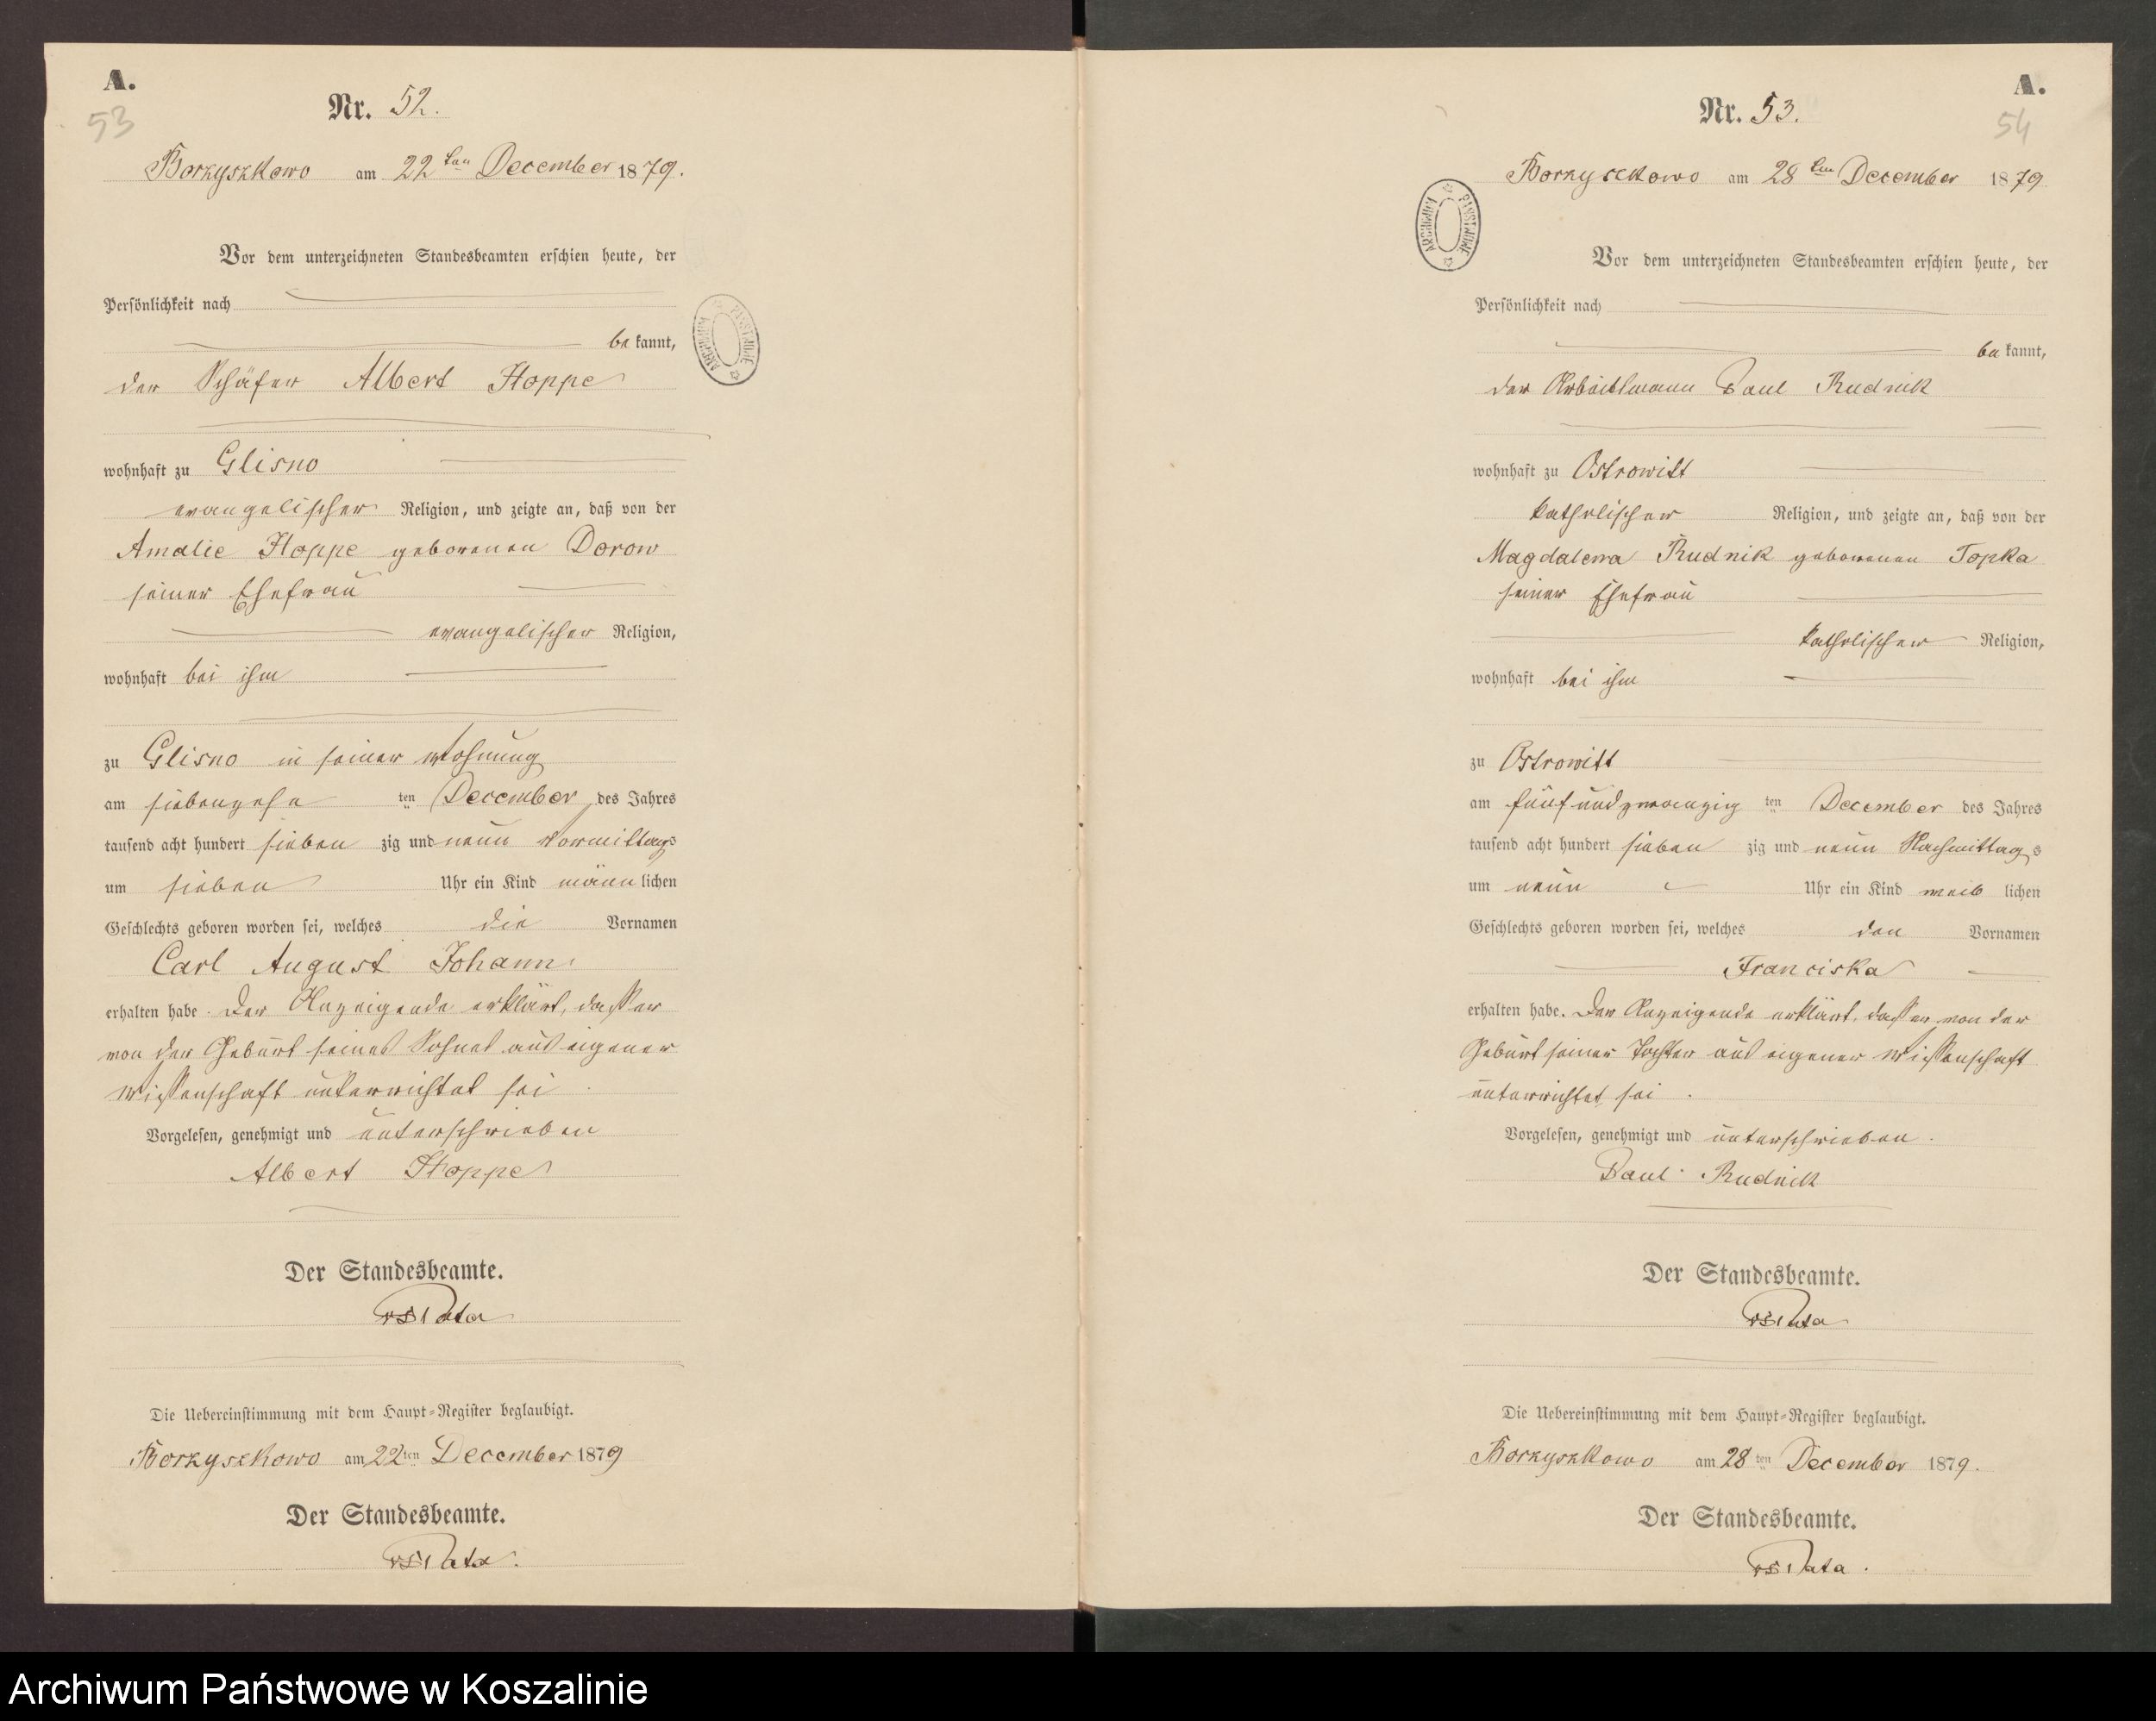 A.
53
Nr. 52.
Borzyszkowo am 22ten December 1879.
Vor dem unterzeichneten Standesbeamten erschien heute, der
Persönlichkeit nach
be kannt,
der Schäfer Albert Hoppe
wohnhaft zu Glisno
evangelischer Religion, und zeigte an, daß von der
Amalie Hoppe geborenen Dorow
seiner Ehefrau
evangelischer Religion,
wohnhaft bei ihm
zu Glisno in seiner Wohnung
am siebenzehn ten December des Jahres
tausend acht hundert sieben zig und neun Vormittags
um sieben Uhr ein Kind männ lichen
Geschlechts geboren worden sei, welches die Vornamen
Carl August Johann
erhalten habe. Der Anzeigende erklärt, dass er
von der Geburt seines Sohnes aus eigener
Wissenschaft unterrichtet sei.
Vorgelesen, genehmigt und unterschrieben
Albert Hoppe
Der Standesbeamte.
Die Uebereinstimmung mit dem Haupt-Register beglaubigt.
Borzyszkowo am 22ten December 1879
Der Standesbeamte.
A.
54
Nr. 53.
Borzyszkowo am 28ten December 1879
ARCHIWUM PAŃSTWOWE
Vor dem unterzeichneten Standesbeamten erschien heute, der
Persönlichkeit nach
be kannt,
der Arbeitsmann Paul Rudnik
wohnhaft zu Ostrowitt
katholischer Religion, und zeigte an, daß von der
Magdalena Rudnik geborenen Topka
seiner Ehefrau
katholischer Religion,
wohnhaft bei ihm
zu Ostrowitt
am fünfundzwanzig ten December des Jahres
tausend acht hundert sieben zig und neun Nachmittags
um neun Uhr ein Kind weib lichen
Geschlechts geboren worden sei, welches den Vornamen
Franciska
erhalten habe. Der Anzeigende erklärt, dass er von der
Geburt seiner Tochter aus eigener Wissenschaft
unterrichtet sei.
Vorgelesen, genehmigt und unterschrieben.
Paul Rudnik
Der Standesbeamte.
Die Uebereinstimmung mit dem Haupt-Register beglaubigt.
Borzyszkowo am 28ten December 1879.
Der Standesbeamte.
Archiwum Państwowe w Koszalinie